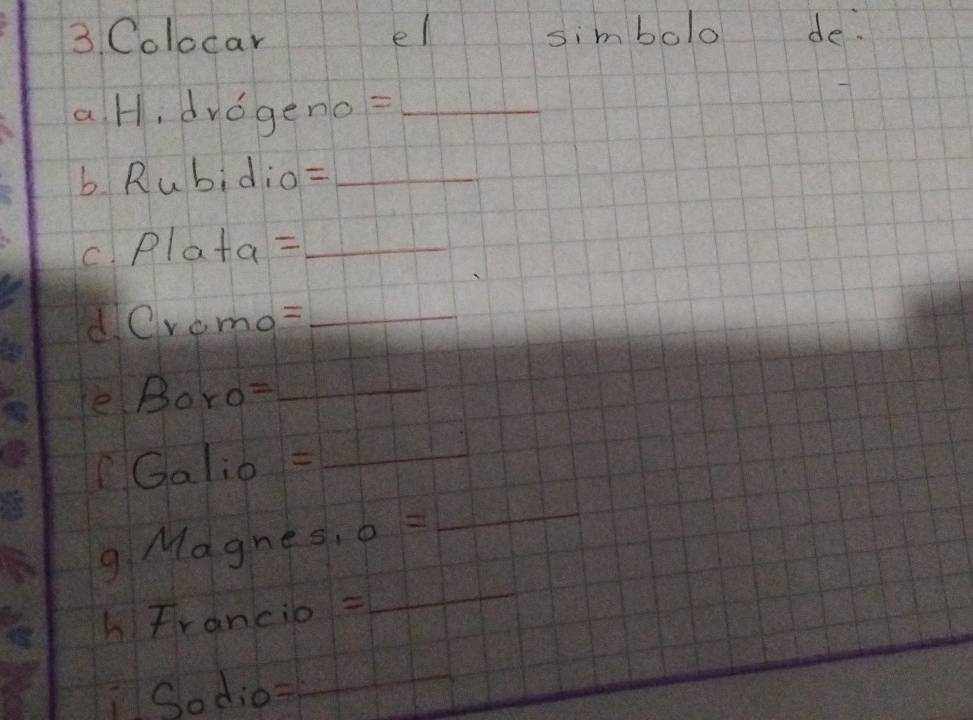 3. Colocar el simbolo de:
a. Hidrógeno = ______
b. Rubidio = ______
c. Plata = ______
d. Cromo = ______
e. Boro = ______
f. Galio = ______
g. Magnesio = ______
h. Francio = ______
i. Sodio = ______